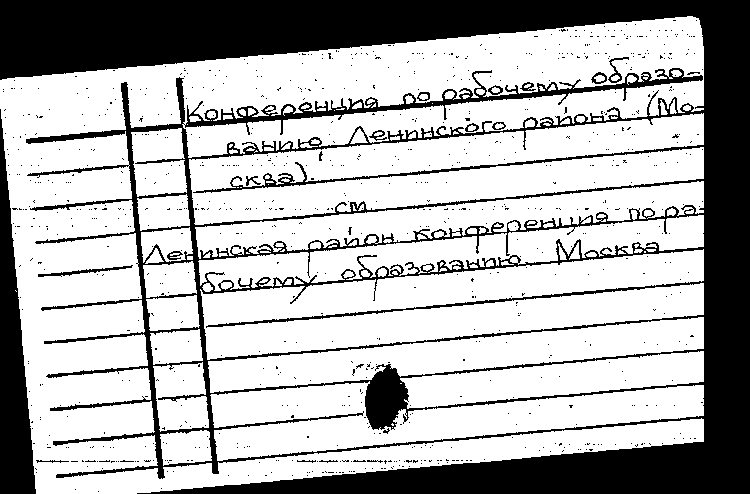 Конференция по рабочему образо-
ванию Ленинского района (Мо-
сква).
см
Ленинская район конференция по ра-
бочему образованию. Москва